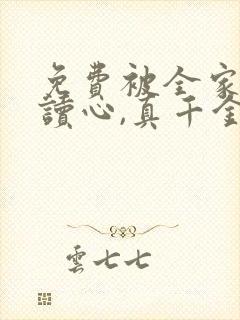 免費被全家
讀心,真千金
雲七七